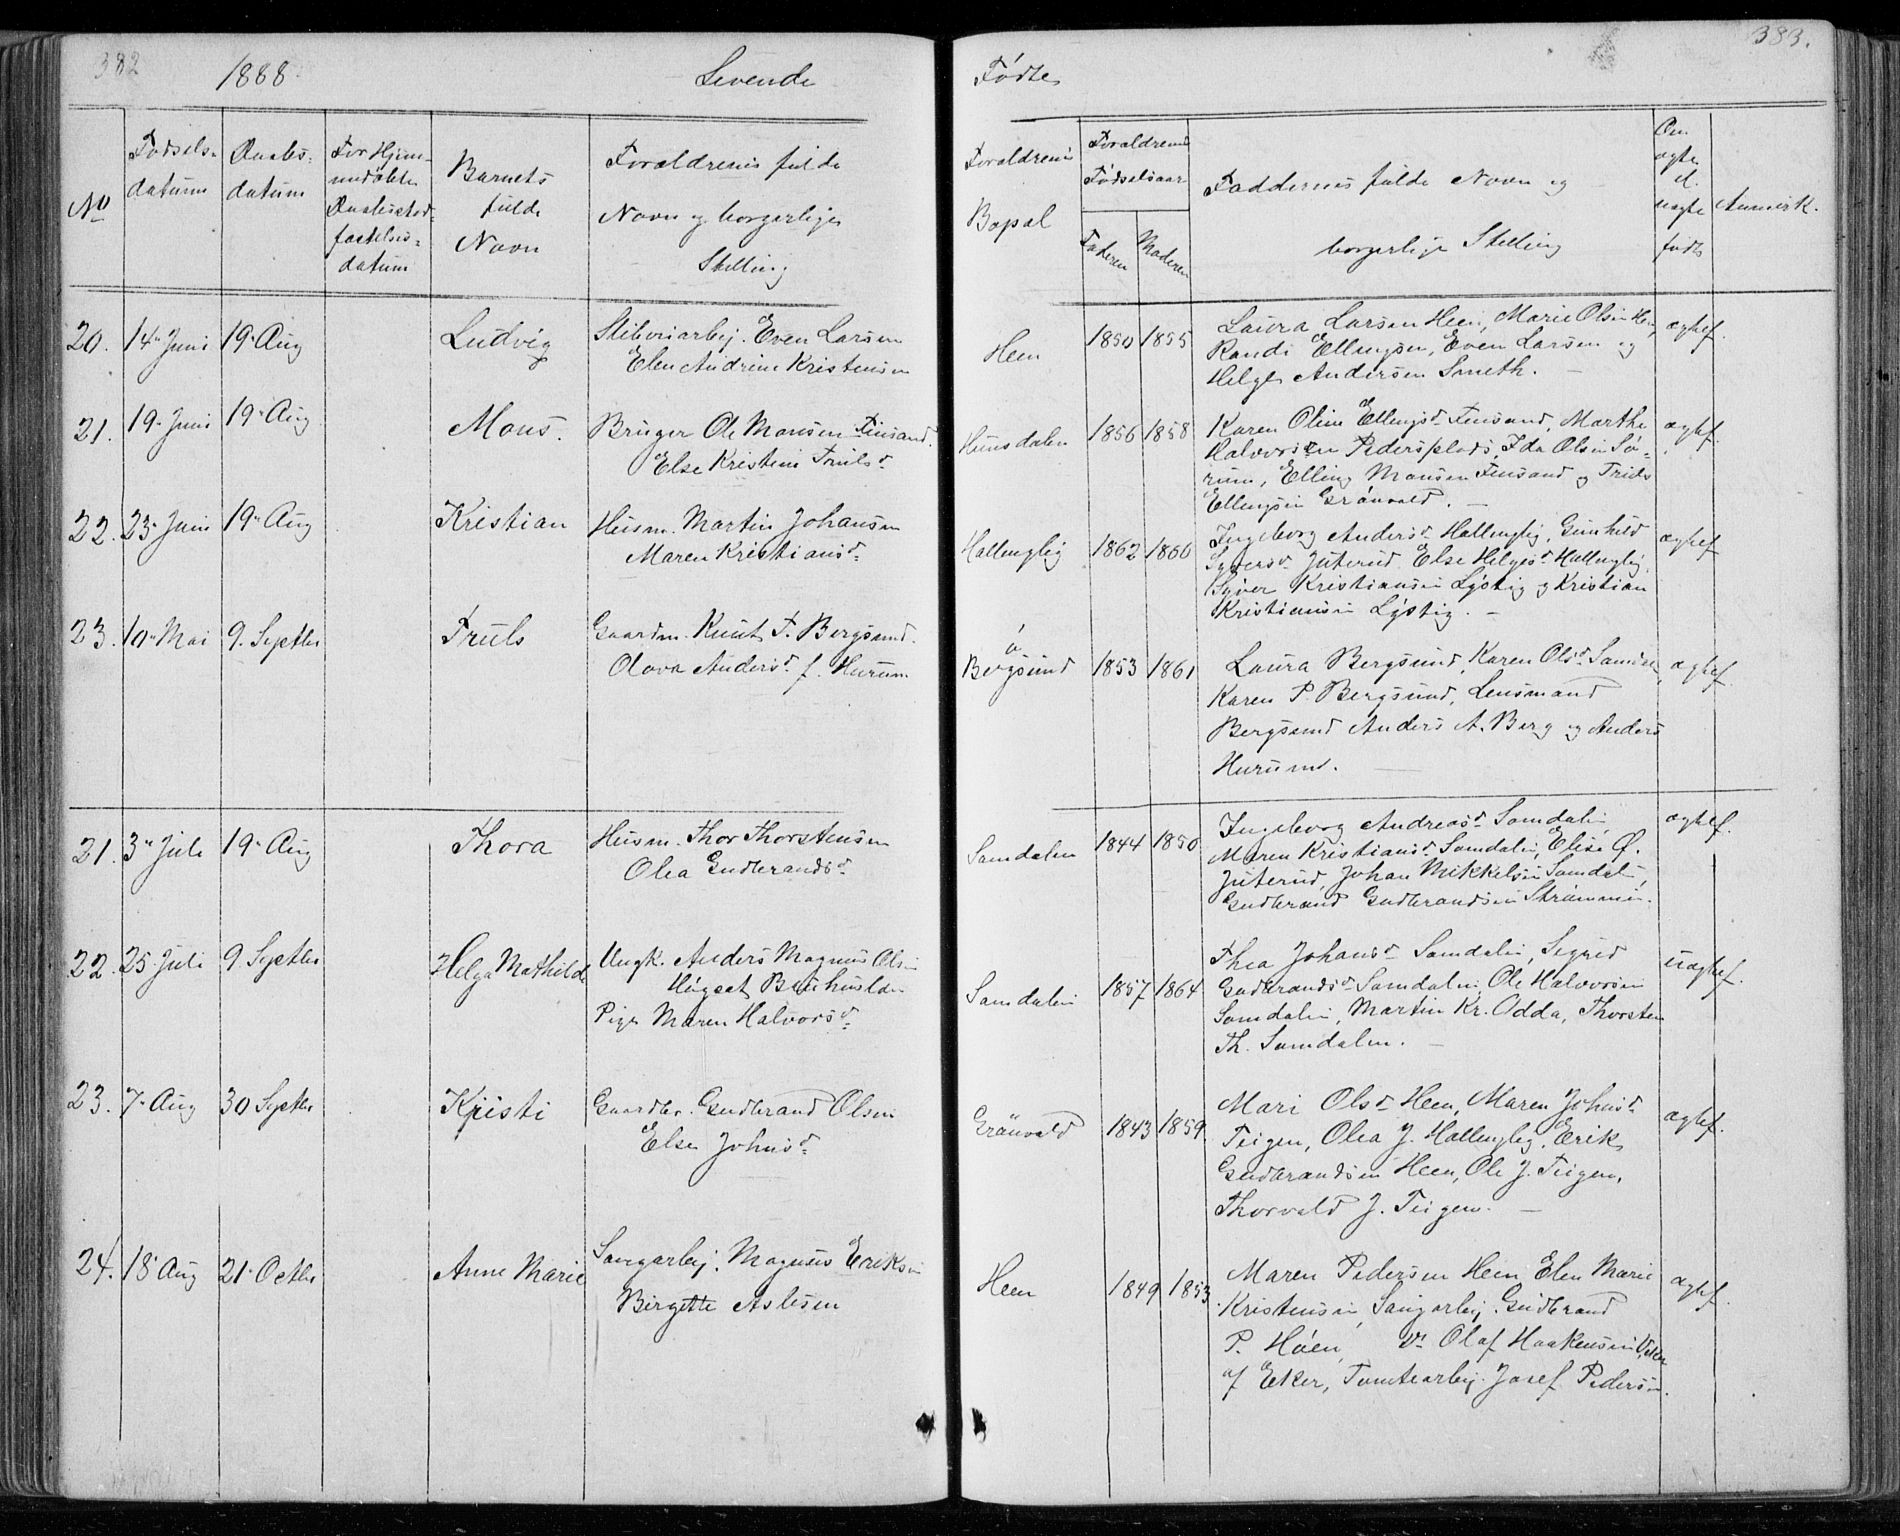 382 1888 Levende
Fødte 383.
No
Fødsels-
datum
Daabs-
datum
For Hjem-
medøbte
Daabsstad-
fæstelses-
datum
Barnets
fulde
Navn
Forældrenes fulde
Navn og borgerlige
Stilling
Forældrenes
Bopæl
Forældrenes
Fødselsaar
Faderen Moderen
Faddernes fulde Navn og
borgerlige Stilling
Om
ægte
el.
uægte
født
Anmærk.
20. 14. Juni 19. Aug Ludvig
Sliberiarbej. Even Larsen
Elen Andrine Kristensen
Heen 1850 1855
Laura Larsen Heen, Marie Olsen Heen,
Randi Ellingsen, Even Larsen og
Helge Andersen Smeth. –
ægtef.
21. 19. Juni 19. Aug Mons.
Bruger Ole Monsen Finsand.
Else Kristine Trulsd.
Hunsdalen 1856 1858
Karen Oline Ellingsd. Finsand, Marthe
Halvorsen Pedersplads, Ida Olsen Sø-
rum, Elling Monsen Finsand og Truls
Ellingsen Grønvold. –
ægtef.
22. 23. Juni 19. Aug Kristian
Husm. Martin Johansen
Maren Kristiansd.
Hallenglig 1862 1866
Ingeborg Andersd. Hallenglig, Gunhild
Syversd. Juterud, Else Helgesd. Hallenglig,
Syver Kristiansen Lystig og Kristian
Kristiansen Lystig. –
ægtef
23. 10. Mai 9. Septbr Truls
Gaardm. Knut T. Bergsund.
Olava Andersd. f. Hurum
Bergsund 1853 1861
Laura Bergsund, Karen Olsd.
Karen P. Bergsund, Lensmand
Bergsund Anders A. Berg og Anders
Hurum. –
ægtef.
21. 3. Juli 19. Aug Thora
Husm. Thor Thorstensen
Olea Gudbrandsd.
Samdalen 1844 1850
Ingeborg Andreasd. Samdalen
Maren Kristiansd. Samdalen, Elise Ø.
Juterud, Johan Mikkelsen Samdalen,
Gudbrand Gudbrandsen Strømmen.
ægtef.
22. 25. Juli 9. Septbr Helga Mathilde
Ungk. Anders Magnus Olsen
Pige Maren Halvorsd.
Samdalen 1857 1864
Thea Johansd. Samdalen, Sigrid
Gudbrandsd. Samdalen, Ole Halvorsen
Samdalen, Martin Kr. Odda, Thorsten
Th. Samdalen. –
uægtef.
23. 7. Aug 30 Septbr Kristi
Gaardbr. Gudbrand Olsen
Else Johnsd.
Grønvold 1843 1859.
Mari Olsd. Heen, Maren Johnsd.
Teigen, Olea J. Hallenglig, Erik
Gudbrandsen Heen, Ole J. Teigen,
Thorvald J. Teigen. –
ægtef.
24. 18. Aug 21. Octbr Anne Marie
Sangarbej. Magnus Eriksen
Birgitte Aslesen
Heen 1849 1853.
Maren Pedersen Heen, Elen Marie
Kristensen, Sangarbej. Gudbrand
P. Høen, Olaf Haakensen
af Eker, Tomtearbej. Josef Pedersen.
ægtef.